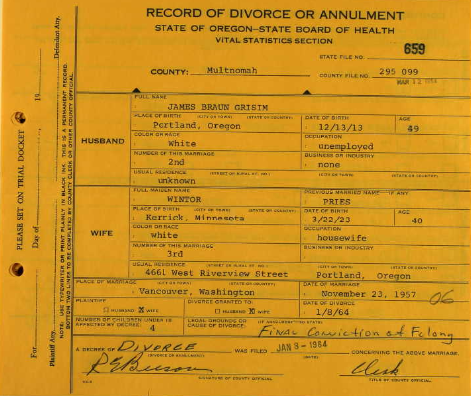 RECORD OF DIVORCE OR ANNULMENT
STATE OF OREGON—STATE BOARD OF HEALTH
VITAL STATISTICS SECTION
STATE FILE NO. 659
COUNTY: Multnomah COUNTY FILE NO. 295 099
MAR 12 1964
PLEASE SET ON TRIAL DOCKET
Defendant Atty.
19
Day of
For
Plaintiff Atty.
NOTE: USE TYPEWRITER OR PRINT PLAINLY IN BLACK INK. THIS IS A PERMANENT RECORD.
BOTTOM TWO LINES TO BE COMPLETED BY COUNTY CLERK OR OTHER COUNTY OFFICIAL.
HUSBAND
FULL NAME
JAMES BRAUN GRISIM
PLACE OF BIRTH (CITY OR TOWN) (STATE OR COUNTRY) DATE OF BIRTH AGE
Portland, Oregon 12/13/13 49
COLOR OR RACE OCCUPATION
White unemployed
NUMBER OF THIS MARRIAGE BUSINESS OR INDUSTRY
2nd none
USUAL RESIDENCE (STREET OR RURAL RT. NO.) (CITY OR TOWN) (STATE OR COUNTRY)
unknown
WIFE
FULL MAIDEN NAME PREVIOUS MARRIED NAME—IF ANY
WINTOR PRIES
PLACE OF BIRTH (CITY OR TOWN) (STATE OR COUNTRY) DATE OF BIRTH AGE
Kerrick, Minnesota 3/22/23 40
COLOR OR RACE OCCUPATION
White housewife
NUMBER OF THIS MARRIAGE BUSINESS OR INDUSTRY
3rd
USUAL RESIDENCE (STREET OR RURAL RT. NO.) (CITY OR TOWN) (STATE OR COUNTRY)
4661 West Riverview Street Portland, Oregon
PLACE OF MARRIAGE (CITY OR TOWN) (STATE OR COUNTRY) DATE OF MARRIAGE
Vancouver, Washington November 23, 1957 06
PLAINTIFF DIVORCE GRANTED TO: DATE OF DIVORCE
HUSBAND X WIFE HUSBAND X WIFE 1/8/64
NUMBER OF CHILDREN UNDER 18 AFFECTED BY DECREE: 4 LEGAL GROUNDS OR CAUSE OF DIVORCE: Final Conviction of Felony
A DECREE OF Divorce WAS FILED JAN 8 - 1964 CONCERNING THE ABOVE MARRIAGE.
(DIVORCE OR ANNULMENT) (DATE)
Clerk
SIGNATURE OF COUNTY OFFICIAL TITLE OF COUNTY OFFICIAL